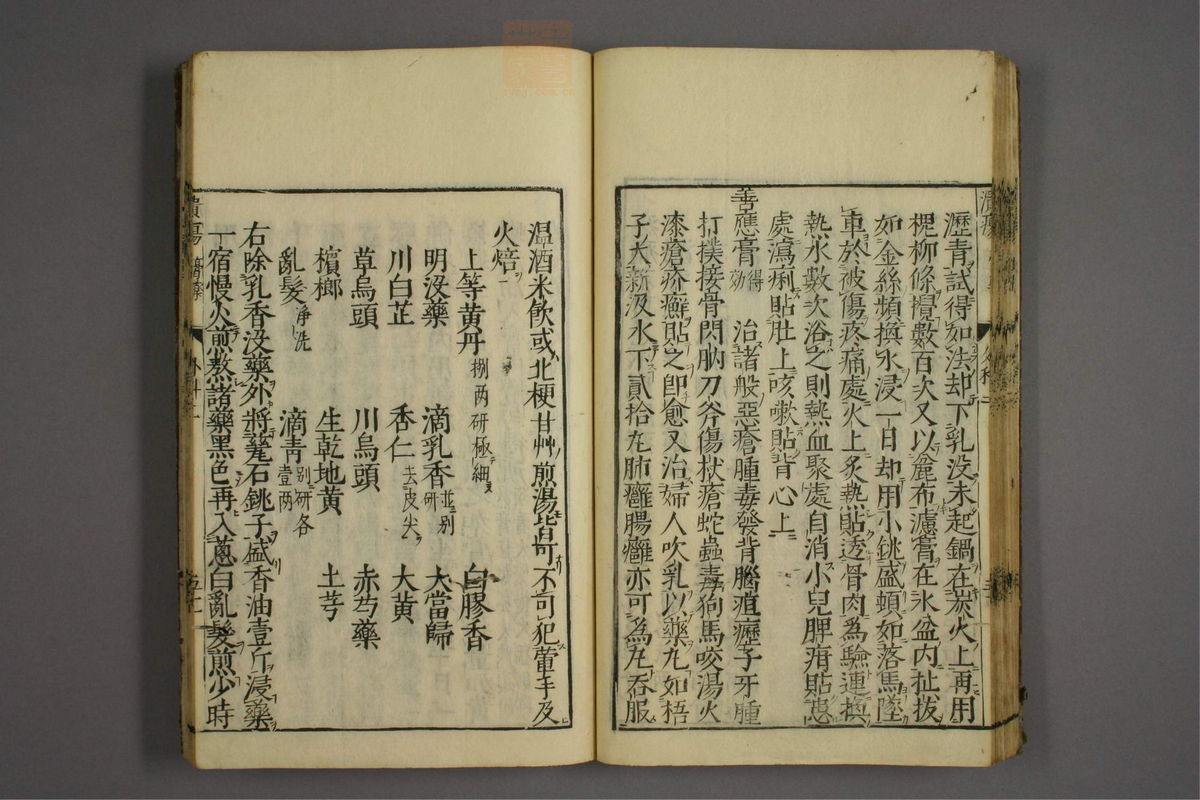 瀝青試得如法却下乳没未起鍋在炭火上再用
槐柳條攪數百次又以麄布濾膏在氷盆内扯拔
如金絲頻換水浸一日却用小銚盛頓如落馬墜
車於被傷疼痛處火上炙熱貼透骨肉爲驗連換
熱水數次浴之則熱血聚處自消小兒脾疳貼患
處瀉痢貼肚上咳嗽貼背心上
善應膏 得効 治諸般惡瘡腫毒發背腦疽癧子牙腫
打撲接骨閃肭刀斧傷杖瘡蛇蟲毒狗馬咬湯火
漆瘡疥癬貼之即愈又治婦人吹乳以藥丸如梧
子大新汲水下貳拾丸肺癰腸癰亦可為丸吞服
温酒米飲或北梗甘艸煎湯皆可不可犯葷手及
火焙
上等黄丹 捌两研極細 白膠香
明没藥 滴乳香 並别研 大當歸
川白芷 杏仁 去皮尖 大黄
草烏頭 川烏頭 赤芍藥
檳榔 生乾地黄 土芎
亂髮 淨洗 滴青 别研各壹两
右除乳香没藥外將甆石銚子盛香油壹斤浸藥
一宿慢火煎熬諸藥黑色再入蔥白亂髮煎少時